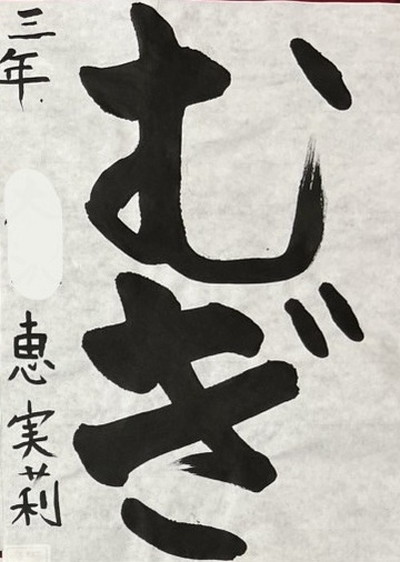 むぎ
三年 恵実莉